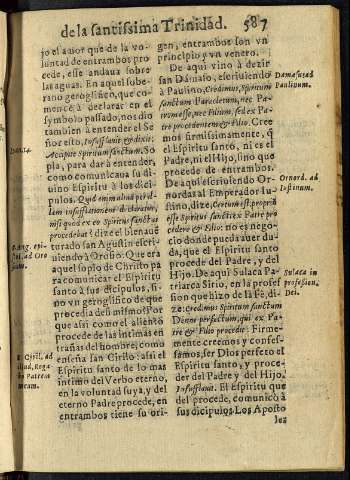 de la santissima Trinidad. 587
jo el amor que de la vo-
luntad de entrambos pro
cede, esse andaua sobre
las aguas. En aquel sobe-
rano geroglifico, que co-
mencè a declarar en el
symbolo passado, nos dio
tambien à entender el Se
ñor esto, Insufflauit & dixit:
Accipite Spiritum sanctum. So
pla, para dar à entender,
como comunicaua su di-
uino Espiritu à los dici-
pulos. Quid enim aliud per il-
lam insufflationem declarauit,
nisi quod ex eo Spiritus sanctus
procedebat? dize el bienauē
turado san Agustin escri-
uiendo à Orosio: Que era
aquel soplo de Christo pa
ra comunicar el Espiritu
santo à sus dicipulos, si-
no vn geroglifico de que
procedia de si mismo? Por
que assi como el aliento
procede de las intimas en
trañas del hombre, como
enseña san Cirilo: assi el
Espiritu santo de lo mas
intimo del Verbo eterno,
en la voluntad suya, y del
eterno Padre procede, en
entrambos tiene su ori-
Ioan.14.
August. epi
ad Oro
sium.
S. Cyril. ad
illud, Roga
bo Patrem
meum.
gen, entrambos son vn
principio, y vn venero.
De aqui vino à dezir
san Damaso, escriuiendo
à Paulino, Credimus, Spiritum
sanctum Paracletum, nec Pa-
trem esse, nec Filium, sed ex Pa-
tre procedentem & Filio. Cree
mos firmissimamente, q̃
el Espiritu santo, ni es el
Padre, ni el Hijo, sino que
procede de entrambos.
De aqui escriuiendo Or-
nordas al Emperador Iu-
stino, dize, Certum est propriũ
esse Spiritus sancti ex Patre pro
cedere & Filio: no es nego-
cio donde pueda auer du-
da, que el Espiritu santo
procede del Padre, y del
Hijo. De aqui Sulaca Pa-
triarca Sirio, en la profes-
sion que hizo de la Fè, di-
ze: Credimus Spiritum sanctum
Deum perfectum, qui ex Pa-
tre & Filio procedit: Firme-
mente creemos y confes-
samos, ser Dios perfeto el
Espiritu santo, y proce-
der del Padre y del Hijo.
Insufflauit. El Espiritu que
del procede, comunicò à
sus dicipulos. Los Aposto
les
Damasus ad
Paulinum.
Ornord. ad
Iustinum.
Sulaca in
profession.
Dei.